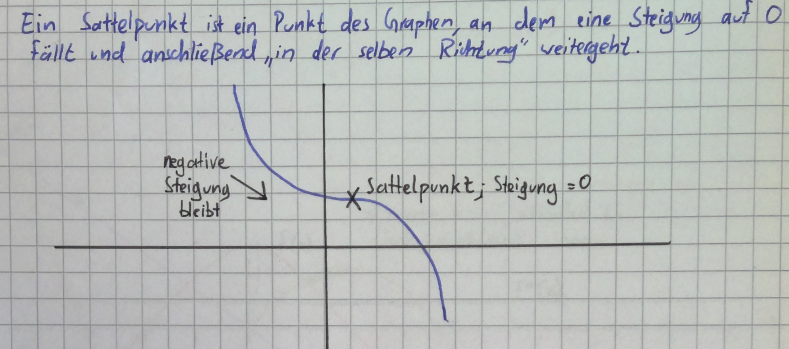 Ein Sattelpunkt ist ein Punkt des Graphen, an dem eine Steigung auf 0
fällt und anschließend „in der selben Richtung" weitergeht.
negative
Steigung
bleibt
Sattelpunkt; Steigung = 0